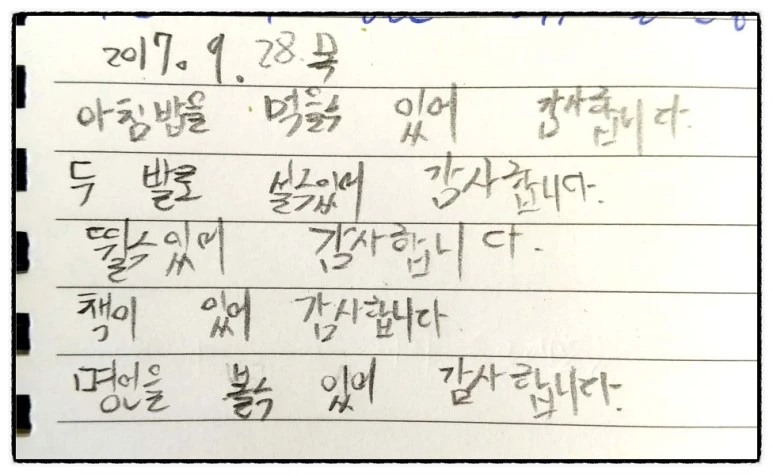 2017. 9. 28. 목
아침밥을 먹을수 있어 감사합니다.
두 발로 설수있어 감사합니다.
뛸수있어 감사합니다.
책이 있어 감사합니다
명언을 볼수 있어 감사합니다.